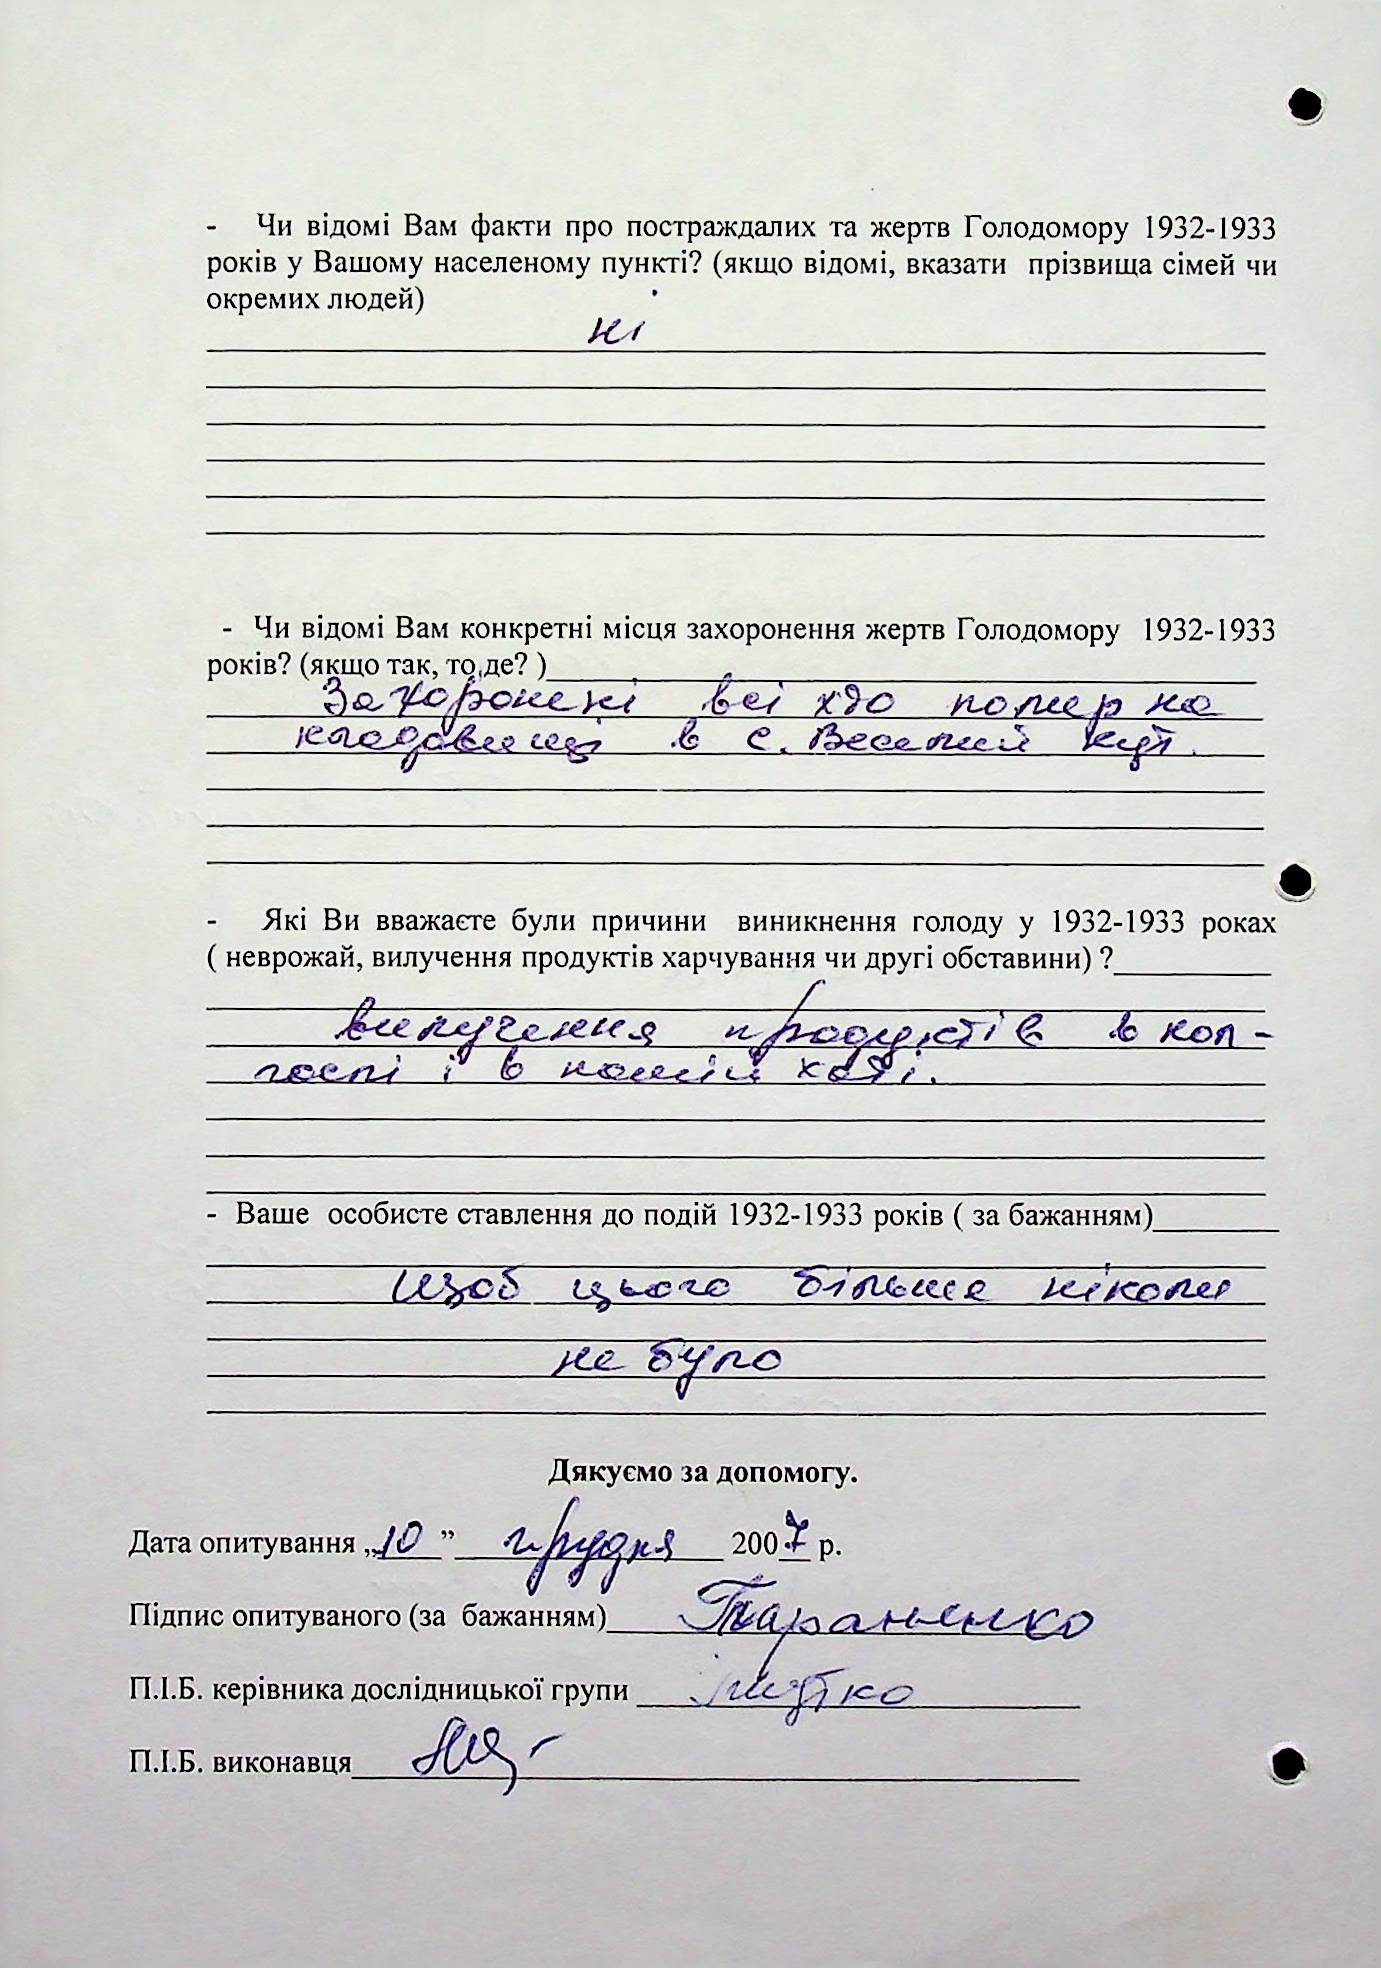 - Чи відомі Вам факти про постраждалих та жертв Голодомору 1932-1933
років у Вашому населеному пункті? (якщо відомі, вказати прізвища сімей чи
окремих людей)
ні
- Чи відомі Вам конкретні місця захоронення жертв Голодомору 1932-1933
років? (якщо так, то де? )
Захоронені всі хто помер на
кладовищі в с. Веселий Кут.
- Які Ви вважаєте були причини виникнення голоду у 1932-1933 роках
( неврожай, вилучення продуктів харчування чи другі обставини) ?
вилучення продуктів в кол-
госпі і в нашій хаті.
- Ваше особисте ставлення до подій 1932-1933 років ( за бажанням)
Щоб цього більше ніколи
не було
Дякуємо за допомогу.
Дата опитування „10” грудня 2007 р.
Підпис опитуваного (за бажанням) Тараненко
П.І.Б. керівника дослідницької групи
П.І.Б. виконавця